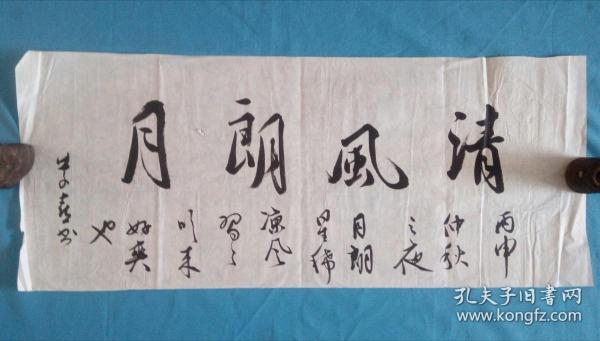 清風朗月
丙申
仲秋
之夜
月朗
星稀
凉风
習〻
吹来
好爽
也
孔夫子旧書网
www.kongfz.com